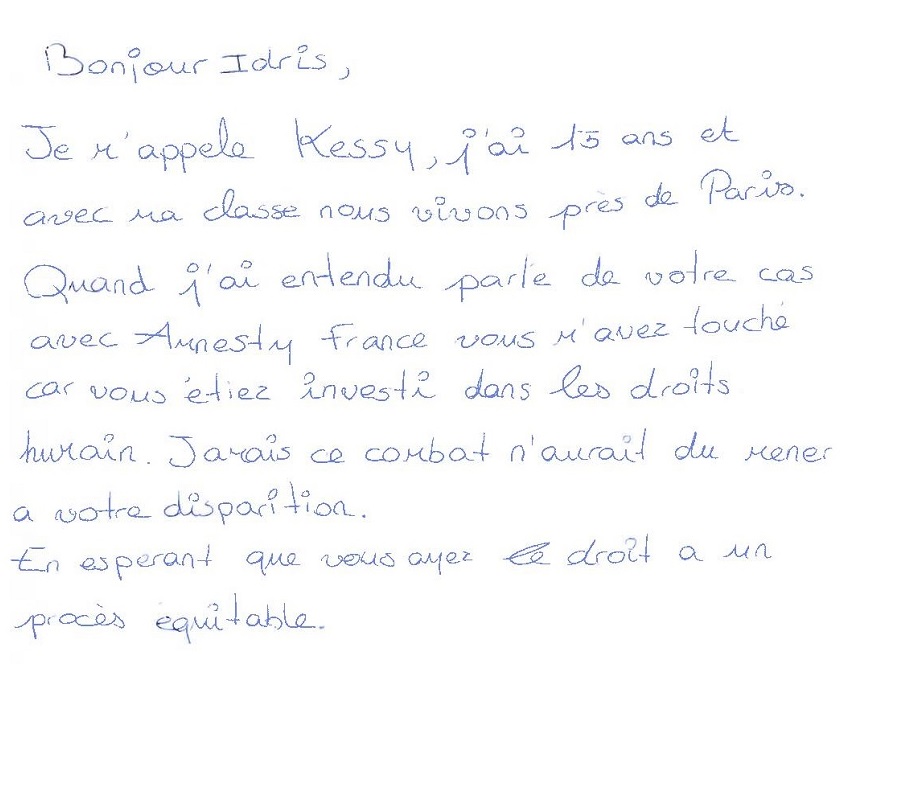 Bonjour Idris,
Je m'appele Kessy, j'ai 15 ans et
avec ma classe nous vivons près de Paris.
Quand j'ai entendu parlé de votre cas
avec Amnesty france vous m'avez touché
car vous étiez investi dans les droits
humain. Jamais ce combat n'aurait du mener
a votre disparition.
En esperant que vous ayez droit a un
procès équitable.